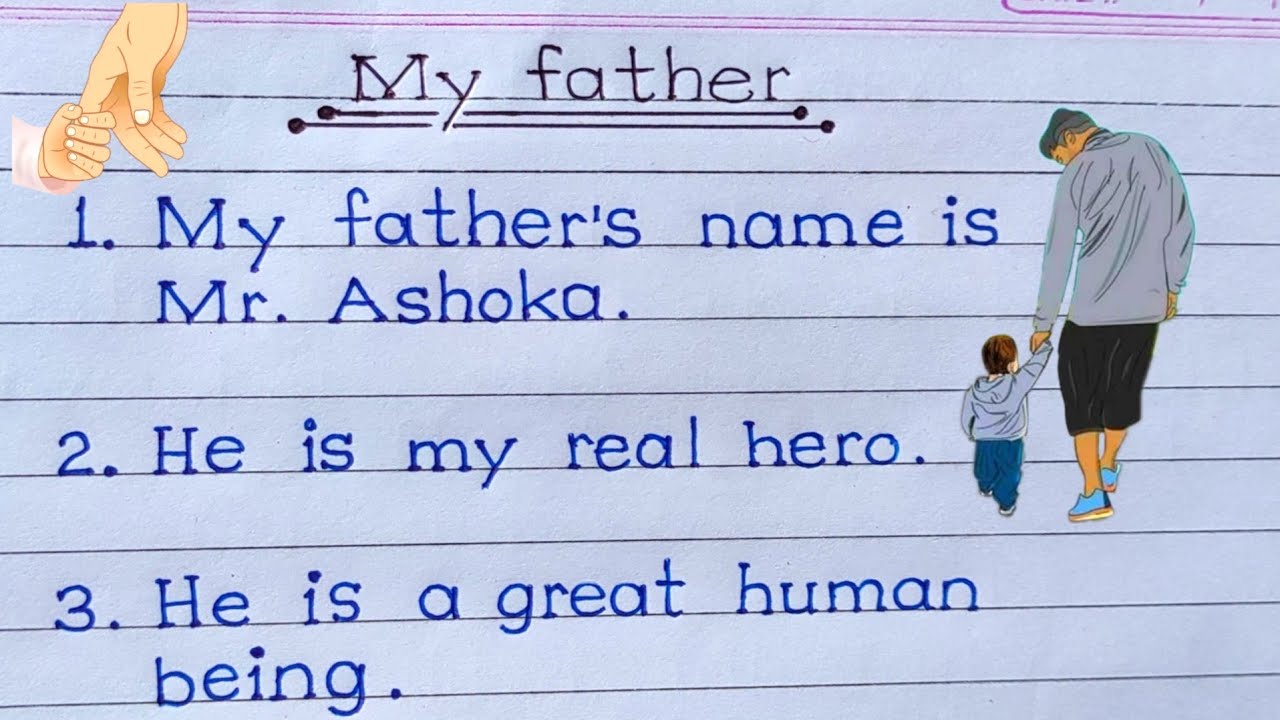 My father
1. My father's name is
Mr. Ashoka.
2. He is my real hero.
3. He is a great human
being.